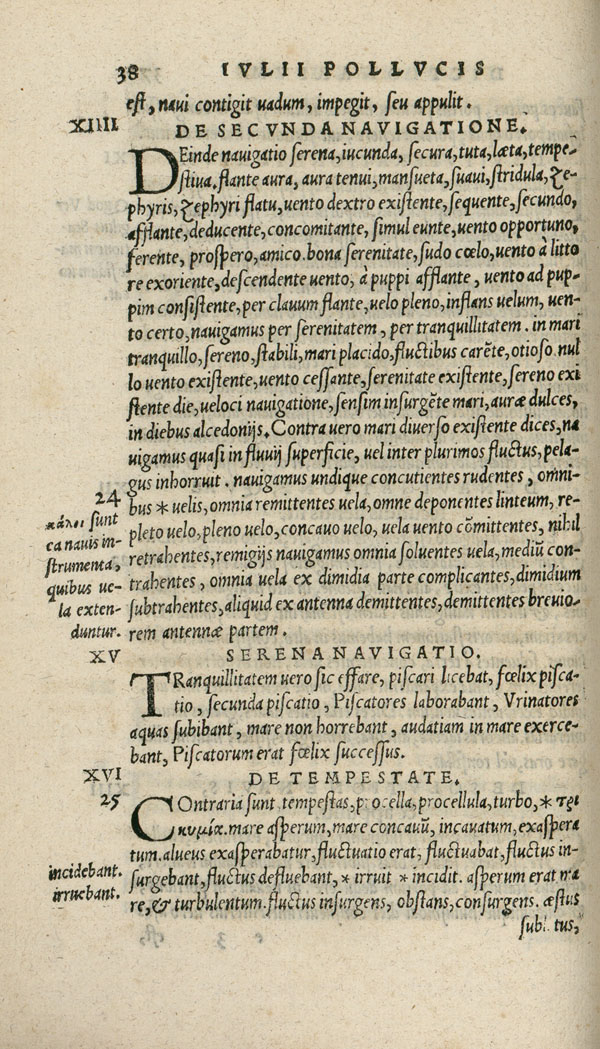 38 IVLII POLLVCIS
est, naui contigit uadum, impegit, seu appulit.
XIIII DE SECVNDA NAVIGATIONE.
DEinde nauigatio serena, iucunda, secura, tuta, læta, tempe-
stiua. flante aura, aura tenui, mansueta, suaui, stridula, ze-
phyris, zephyri flatu, uento dextro existente, sequente, secundo,
afflante, deducente, concomitante, simul eunte, uento opportuno,
ferente, prospero, amico. bona serenitate, sudo cœlo, uento à litto
re exoriente, descendente uento, à puppi afflante, uento ad pup-
pim consistente, per clauum flante, uelo pleno, inflans uelum, uen-
to certo, nauigamus per serenitatem, per tranquillitatem. in mari
tranquillo, sereno, stabili, mari placido, fluctibus carēte, otioso nul
lo uento existente, uento cessante, serenitate existente, sereno exi
stente die, ueloci nauigatione, sensim insurgēte mari, auræ dulces,
in diebus alcedonijs. Contra uero mari diuerso existente dices, na
uigamus quasi in fluuij superficie, uel inter plurimos fluctus, pela-
gus inhorruit. nauigamus undique concutientes rudentes, omni-
24
bus * uelis, omnia remittentes uela, omne deponentes linteum, re-
κάλοι sunt
ca nauis in-
strumenta,
quibus ue-
la exten-
duntur.
pleto uelo, pleno uelo, concauo uelo, uela uento cōmittentes, nihil
retrahentes, remigijs nauigamus omnia soluentes uela, mediū con-
trahentes, omnia uela ex dimidia parte complicantes, dimidium
subtrahentes, aliquid ex antenna demittentes, demittentes breuio-
rem antennæ partem.
XV SERENA NAVIGATIO.
TRanquillitatem uero sic effare, piscari licebat, fœlix pisca-
tio, secunda piscatio, Piscatores laborabant, Vrinatores
aquas subibant, mare non horrebant, audatiam in mare exerce-
bant, Piscatorum erat fœlix successus.
XVI DE TEMPESTATE.
25
COntraria sunt tempestas, procella, procellula, turbo, * τρι
κυμία. mare asperum, mare concauū, incauatum, exaspera
tum. alueus exasperabatur, fluctuatio erat, fluctuabat, fluctus in-
incidebant.
surgebant, fluctus defluebant, * irruit * incidit. asperum erat ma
irruebant.
re, & turbulentum. fluctus insurgens, obstans, consurgens. æstus